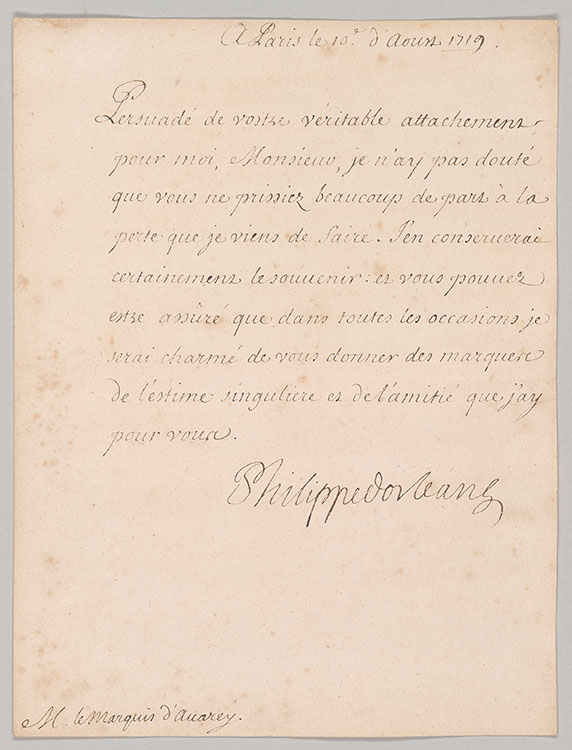 A Paris le 10.e d'Aoust 1719.
Persuadé de vostre véritable attachement
pour moi, Monsieur, je n'ay pas douté
que vous ne prissiez beaucoup de part à la
perte que je viens de faire. J'en conserverai
certainement le souvenir: et vous pouvez
estre assûré que dans toutes les occasions je
serai charmé de vous donner des marques
de l'estime singuliere et de l'amitié que j'ay
pour vous.
Philippe d'orleans
M. le Marquis d'Avarey.